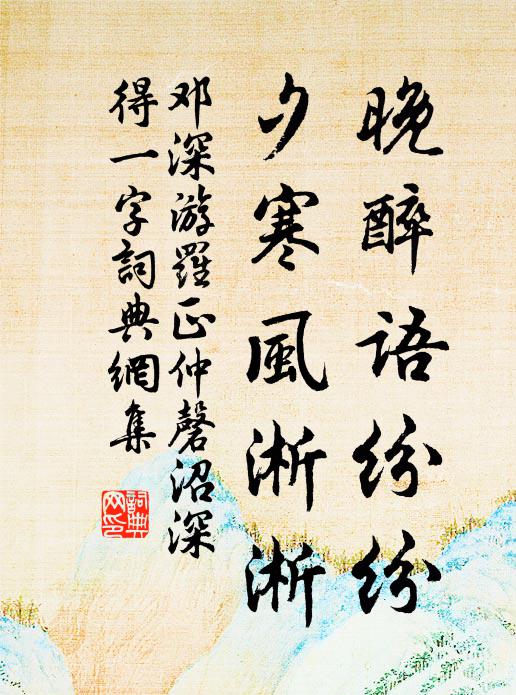 晚醉语纷纷
夕寒風淅淅
邓深游羅正仲磬沼深
得一字詞典網集
詞典
网印